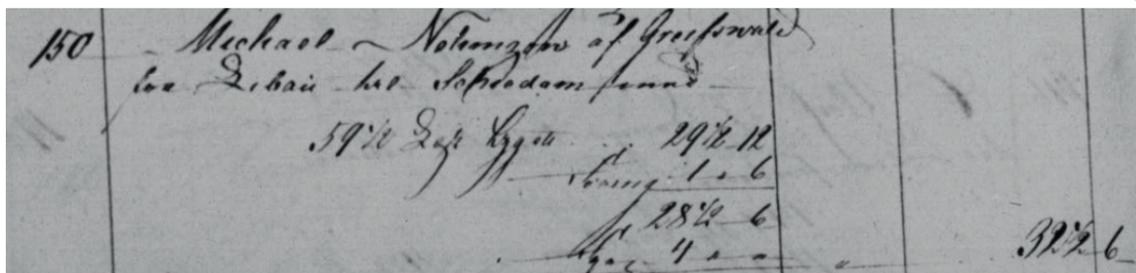 150 Michael Nohmzow af Greifswald
fra Libau til Schiedam med
59 1/2 Læst Bygg 29 1/2 12
1 " 6
28 1/2 6
4 " "
" 32 1/2 6